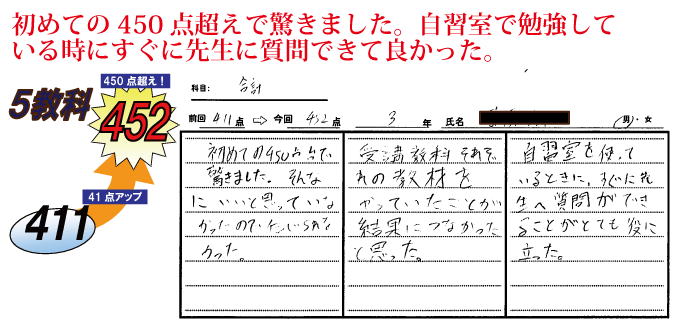 初めての450点超えで驚きました。自習室で勉強して
いる時にすぐに先生に質問できて良かった。
450点超え！
5教科
452
41点アップ
411
科目: 合計
前回 411点 ⇨ 今回 452点 3年 氏名 (男)・女
初めての450点台で
驚きました。そんな
にいいと思っていな
かったので、信じられな
かった。
受講教科それぞ
れの教材を
やっていたことが
結果につながった
と思った。
自習室を使って
いるときに、すぐに先
生へ質問ができ
ることがとても役に
立った。